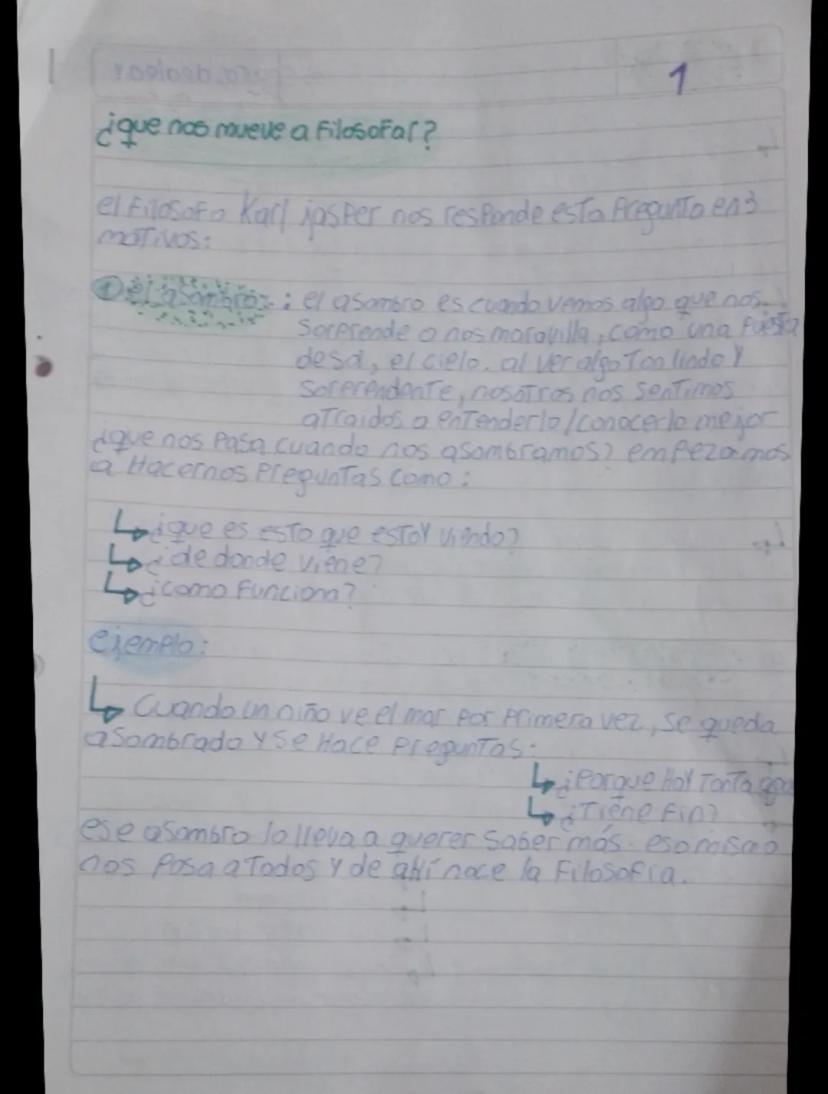 1
¿que nos mueve a Filosofar?
el Filosofo Karl jasper nos responde esta Pregunta en 3
motivos:
① el asombro: el asombro es cuando vemos algo que nos
Sorprende o nos maravilla, como una Puesta
de sol, el cielo. al ver algo Tan lindo Y
Sorprendente, nosotros nos sentimos
atraidos a entenderlo/conocerlo mejor
¿que nos Pasa cuando nos asombramos? empezamos
a Hacernos Preguntas como:
↳ ¿que es esto que estoY viendo?
↳ ¿de donde viene?
↳ ¿como Funciona?
ejemplo:
↳ Cuando un niño ve el mar Por Primera vez, se queda
asombrado Y se Hace Preguntas:
↳ ¿Porque HaY Tanta agua
↳ ¿Tiene Fin?
ese asombro lo lleva a querer saber más. eso mismo
nos Pasa a Todos Y de aHí nace la Filosofia.